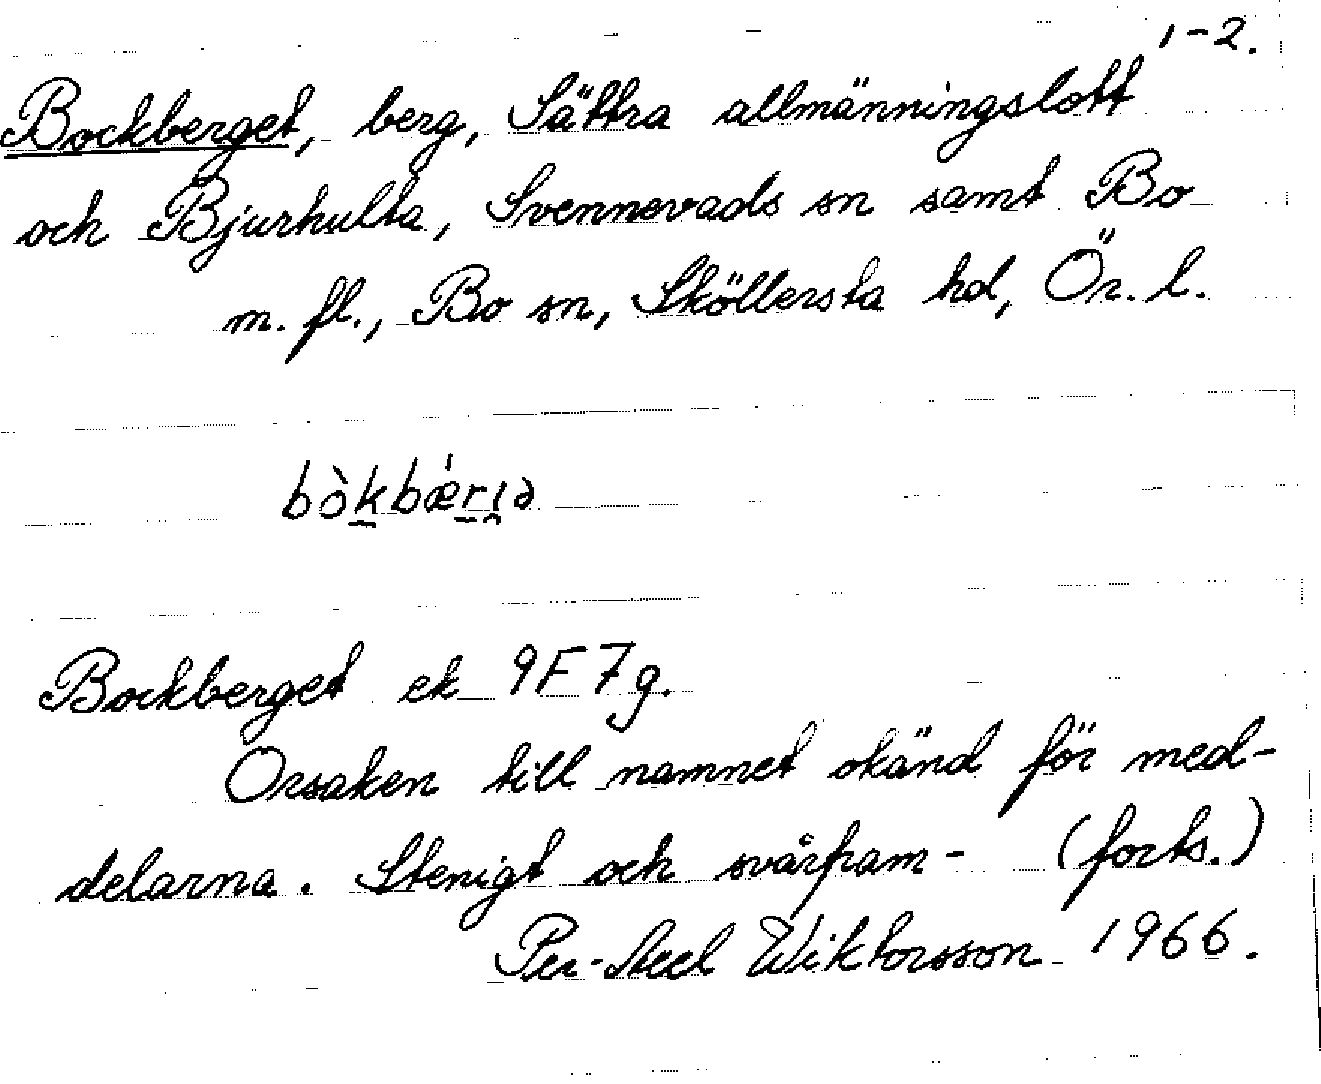 1-2.
Bockberget, berg, Sättra allmänningslott
och Bjurhulta, Svennevads sn samt Bo
m. fl., Bo sn, Sköllersta hd, Ör. l.
bòkbǽrı̯ə
Bockberget ek 9F7g.
Orsaken till namnet okänd för med-
delarna. Stenigt och svårfram- (forts.)
Per-Axel Wiktorsson 1966.